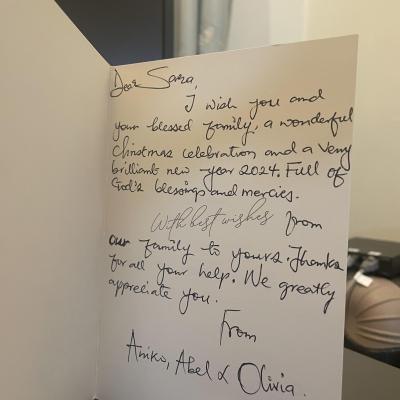 Dear Sara,
I wish you and
your blessed family, a wonderful
Christmas celebration and a very
brilliant new year 2024. Full of
God's blessings and mercies.
With best wishes from
our family to yours. Thanks
for all your help. We greatly
appreciate you.
From
Aniko, Abel & Olivia.